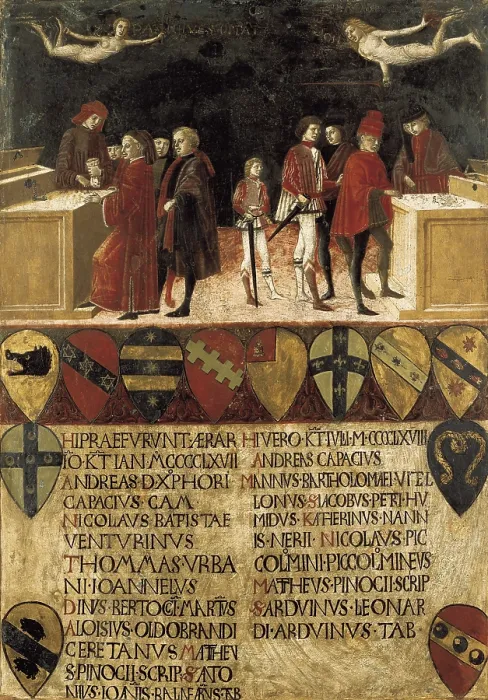 HI PRAEFVRVNT ÆRAR
IO · KTIAN M CCCCLXVII
ANDREAS · D XPHORI
CAPACIVS · CAM
NICOLAVS · BATISTAE
VENTVRINVS
THOMMAS · VRBA
NI · IOANNELVS
DINVS · BERTOCI · MARTIVS
ALOISIVS · OLDOBRANDI
CERETANVS MATHEV
S · PINOCII · SCRIP · SATO
NIVS · IOANIS
HI VERO · KT IVLII · M · CCCCLXVIII
ANDREAS CAPACIVS
MANNVS · BARTHOLOMAEI VITEL
LONVS · S IACOBVS · PETRI · HV
MIDVS · KATHERINVS · NANN
IS · NERII · NICOLAVS · PIC
COLMINI · PICCOLMINEVS
MATHEVS · PINOCII · SCRIP
SARDVINVS · LEONAR
DI · ARDVINVS · TAB